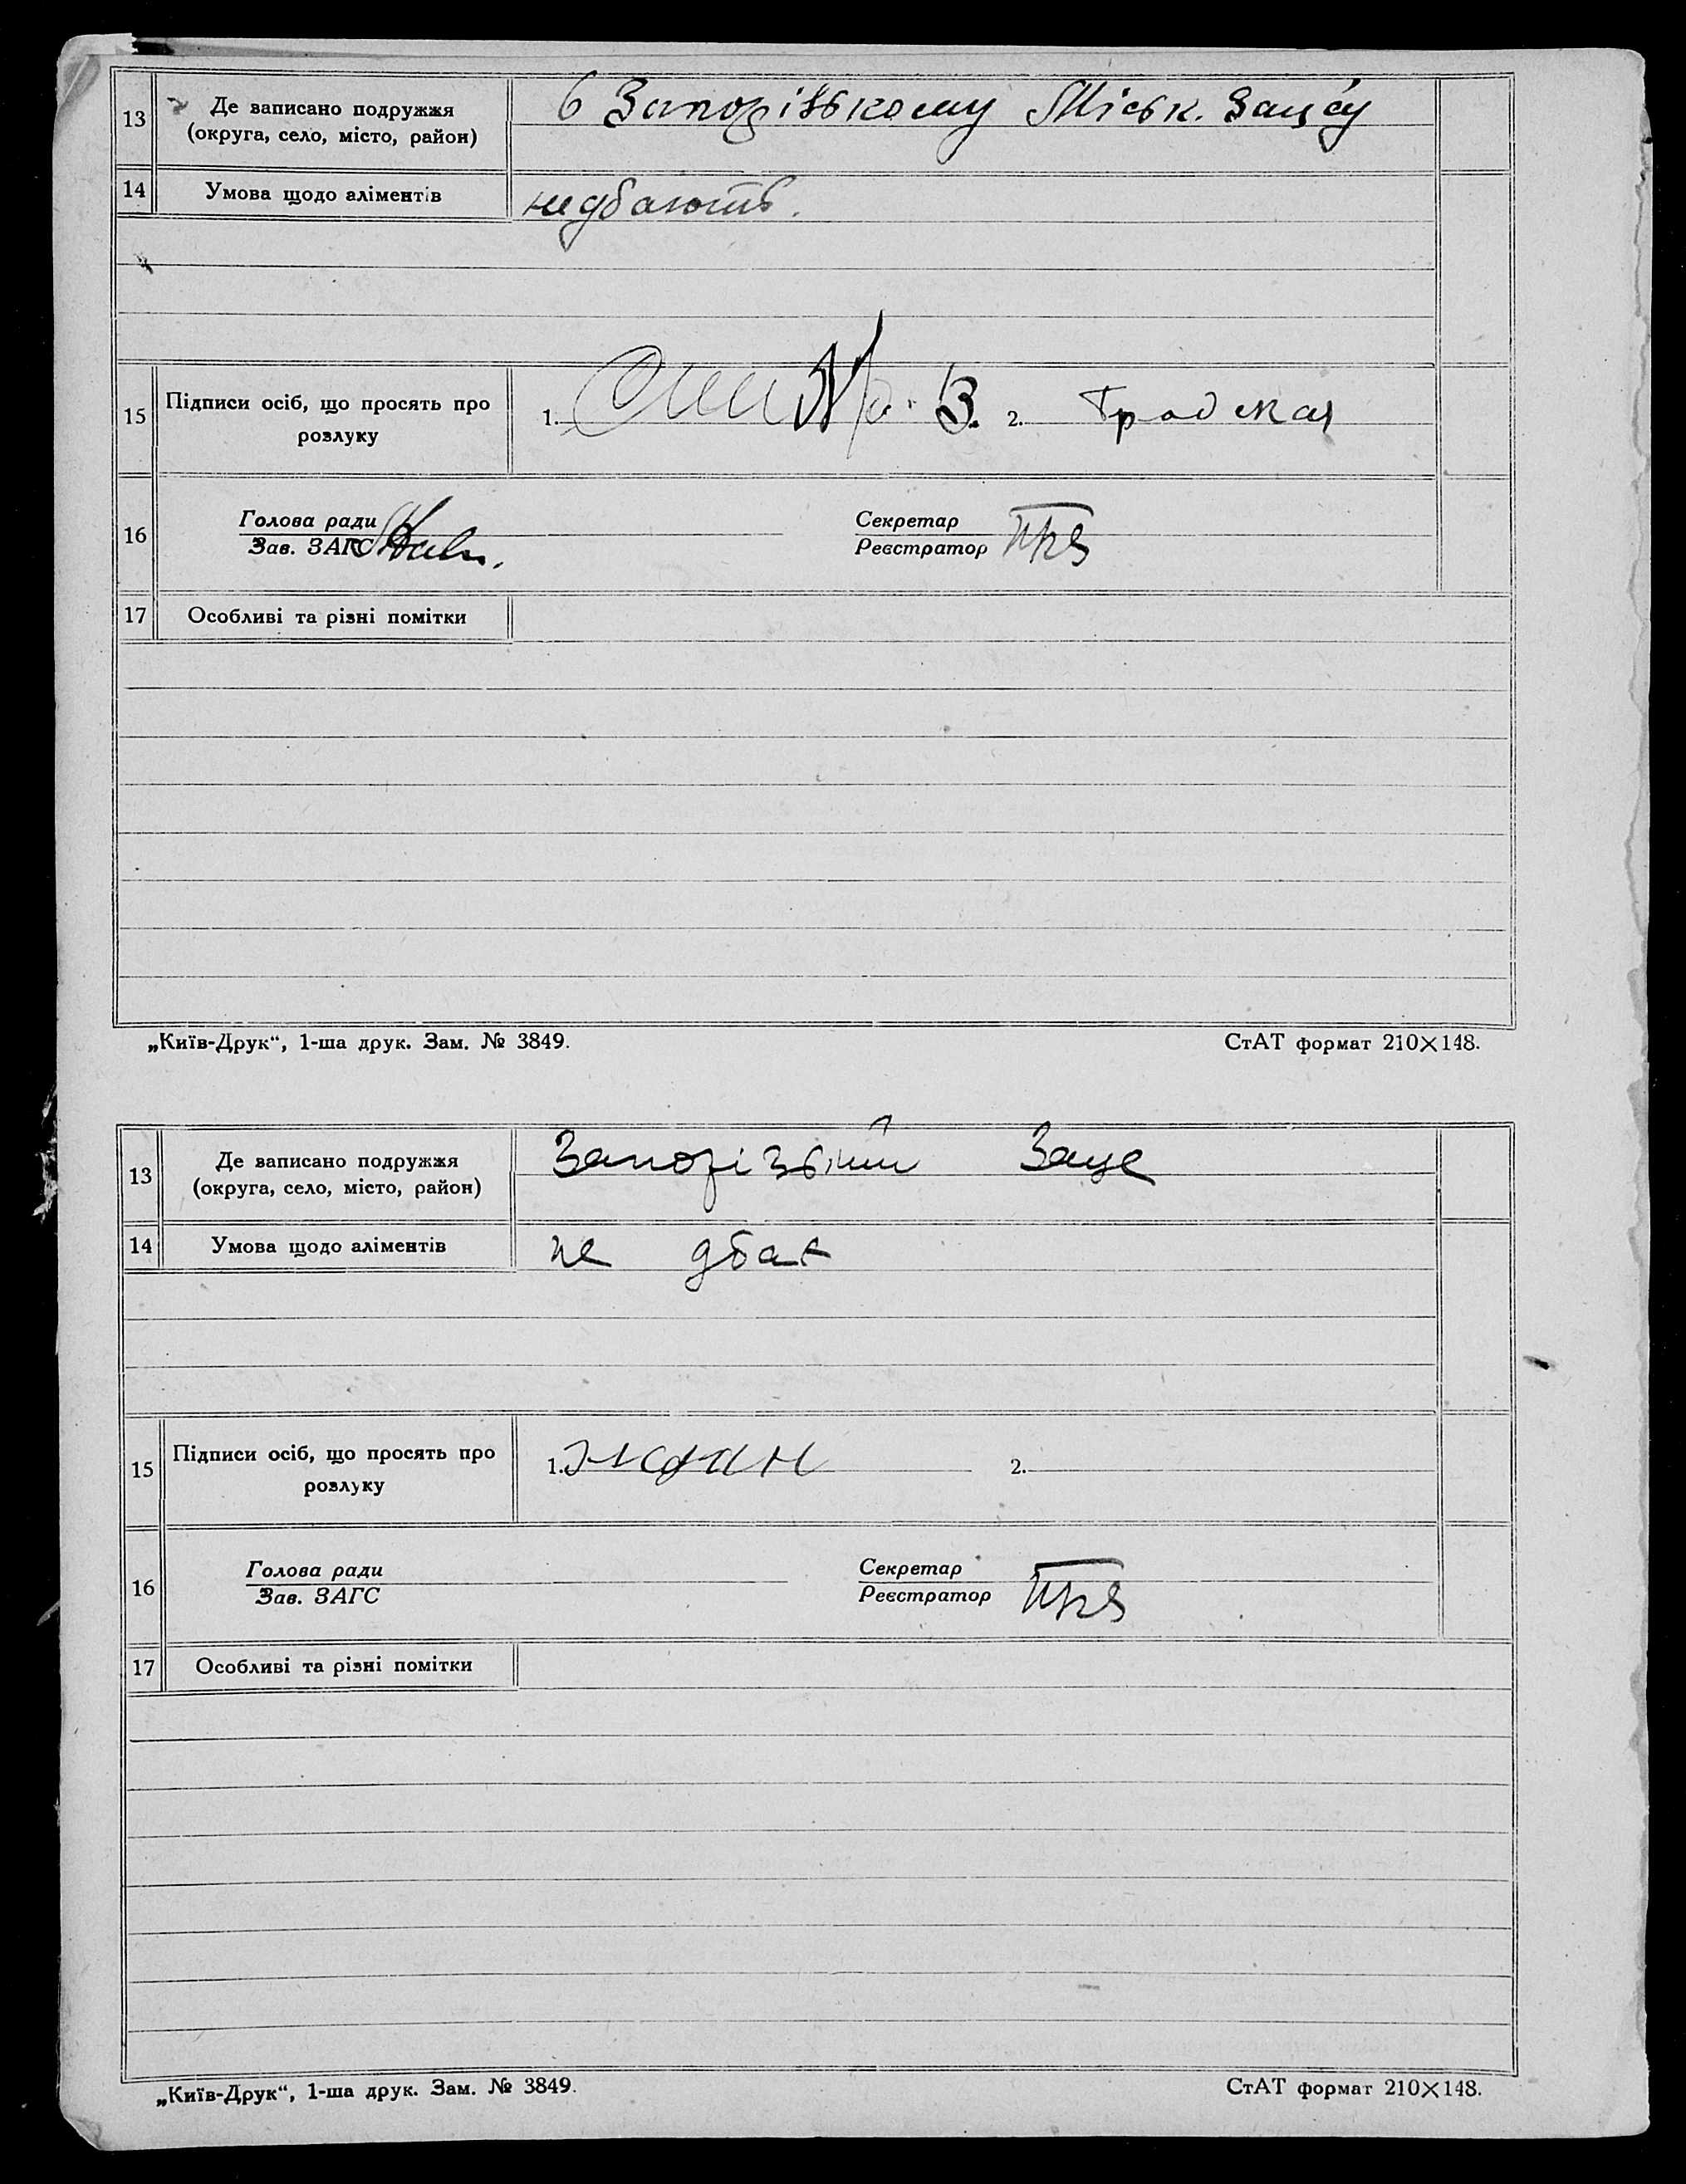 13 Де записано подружжя
(округа, село, місто, район)
в Запорізькому Міськ. Зацсу
14 Умова щодо аліментів
не дбають.
15 Підписи осіб, що просять про
розлуку
1. 2. Градская
16 Голова ради Секретар
Зав. ЗАГС Реєстратор
17 Особливі та різні помітки
„Київ-Друк“, 1-ша друк. Зам. № 3849. СтАТ формат 210×148.
13 Де записано подружжя
(округа, село, місто, район)
14 Умова щодо аліментів
не дбає
15 Підписи осіб, що просять про
розлуку
1. 2.
16 Голова ради Секретар
Зав. ЗАГС Реєстратор
17 Особливі та різні помітки
„Київ-Друк“, 1-ша друк. Зам. № 3849. СтАТ формат 210×148.